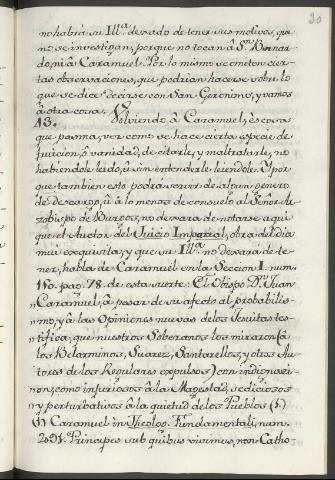 30
no habrá su Ill.ª dexado de tener sus motivos, que
no se investigan, porque no tocan â S.n Bernar-
do, ni â Caramuel. Por lo mismo se omiten cier-
tas observaciones, que podrian hacerse sobre lo
que se dice decirse con San Geronimo, y vamos
â otra cosa.
43. Volviendo â Caramuel, es cosa
que pasma, ver como se hace cierta especie de
juicio, ô vanidad, de citarle, y maltratarle, no
habiendole leido, ù sin entenderle leiendole. Y por
que tambien esto podrá servir de algun genero
de descargo, ù â lo menos de consuelo al Señor Ar-
zobispo de Burgos, no dexara de notarse aqui
que el Auctor del Juicio Imparcial, obra del dia
mui exquisita, y que su Ill.ª no dexará de te-
ner, habla de Caramuel en la Seccion I. num.
150. pag. 78. de esta suerte: El Obispo D.n Juan
Caramuel, â pesar de su afecto al probabilis-
mo, y â las Opiniones nuevas de los Jesuitas tes-
tifica, que nuestros Soberanos los miraron (â
los Belarminos, Suarez, Santarellos, y otros Au-
tores de los Regulares expulsos) con indignacion,
como injuriosos â la Magestad, sediciosos
y perturbativos â la quietud de los Pueblos (1)
(1) Caramuel in Theolog. Fundamentali, num.
2031. Principes sub quibus vivimus, non Catho-